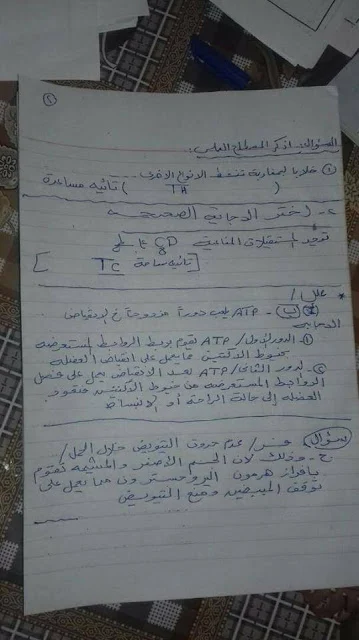 (٢)
السؤال: اذكر المصطلح العلمى
① خلايا ليمفاوية تنشط الأنواع الأخرى
( TH ) تائيه مساعدة
٢- اختر الاجابة الصحيحة
توجد استقبلات المناعية CD8 على
[ تائيه سامة TC ]
علل /
ATP يلعب دوراً مزدوجاً فى الانقباض
① الدور الأول / ATP تقوم بربط الروابط المستعرضه
بخيوط الاكتين مما يعمل على انقباض العضله
② الدور الثانى / ATP بعد الانقباض يعمل على فصل
الروابط المستعرضه عن خيوط الاكتين فتعود
العضله إلى حالة الراحة أو الانبساط
سؤال / فسر / عدم حدوث التبويض خلال الحمل /
ج- وذلك لان الجسم الأصفر والمشيمه تقوم
بإفراز هرمون البروجسترون مما يعمل على
توقف المبيضين ومنع التبويض